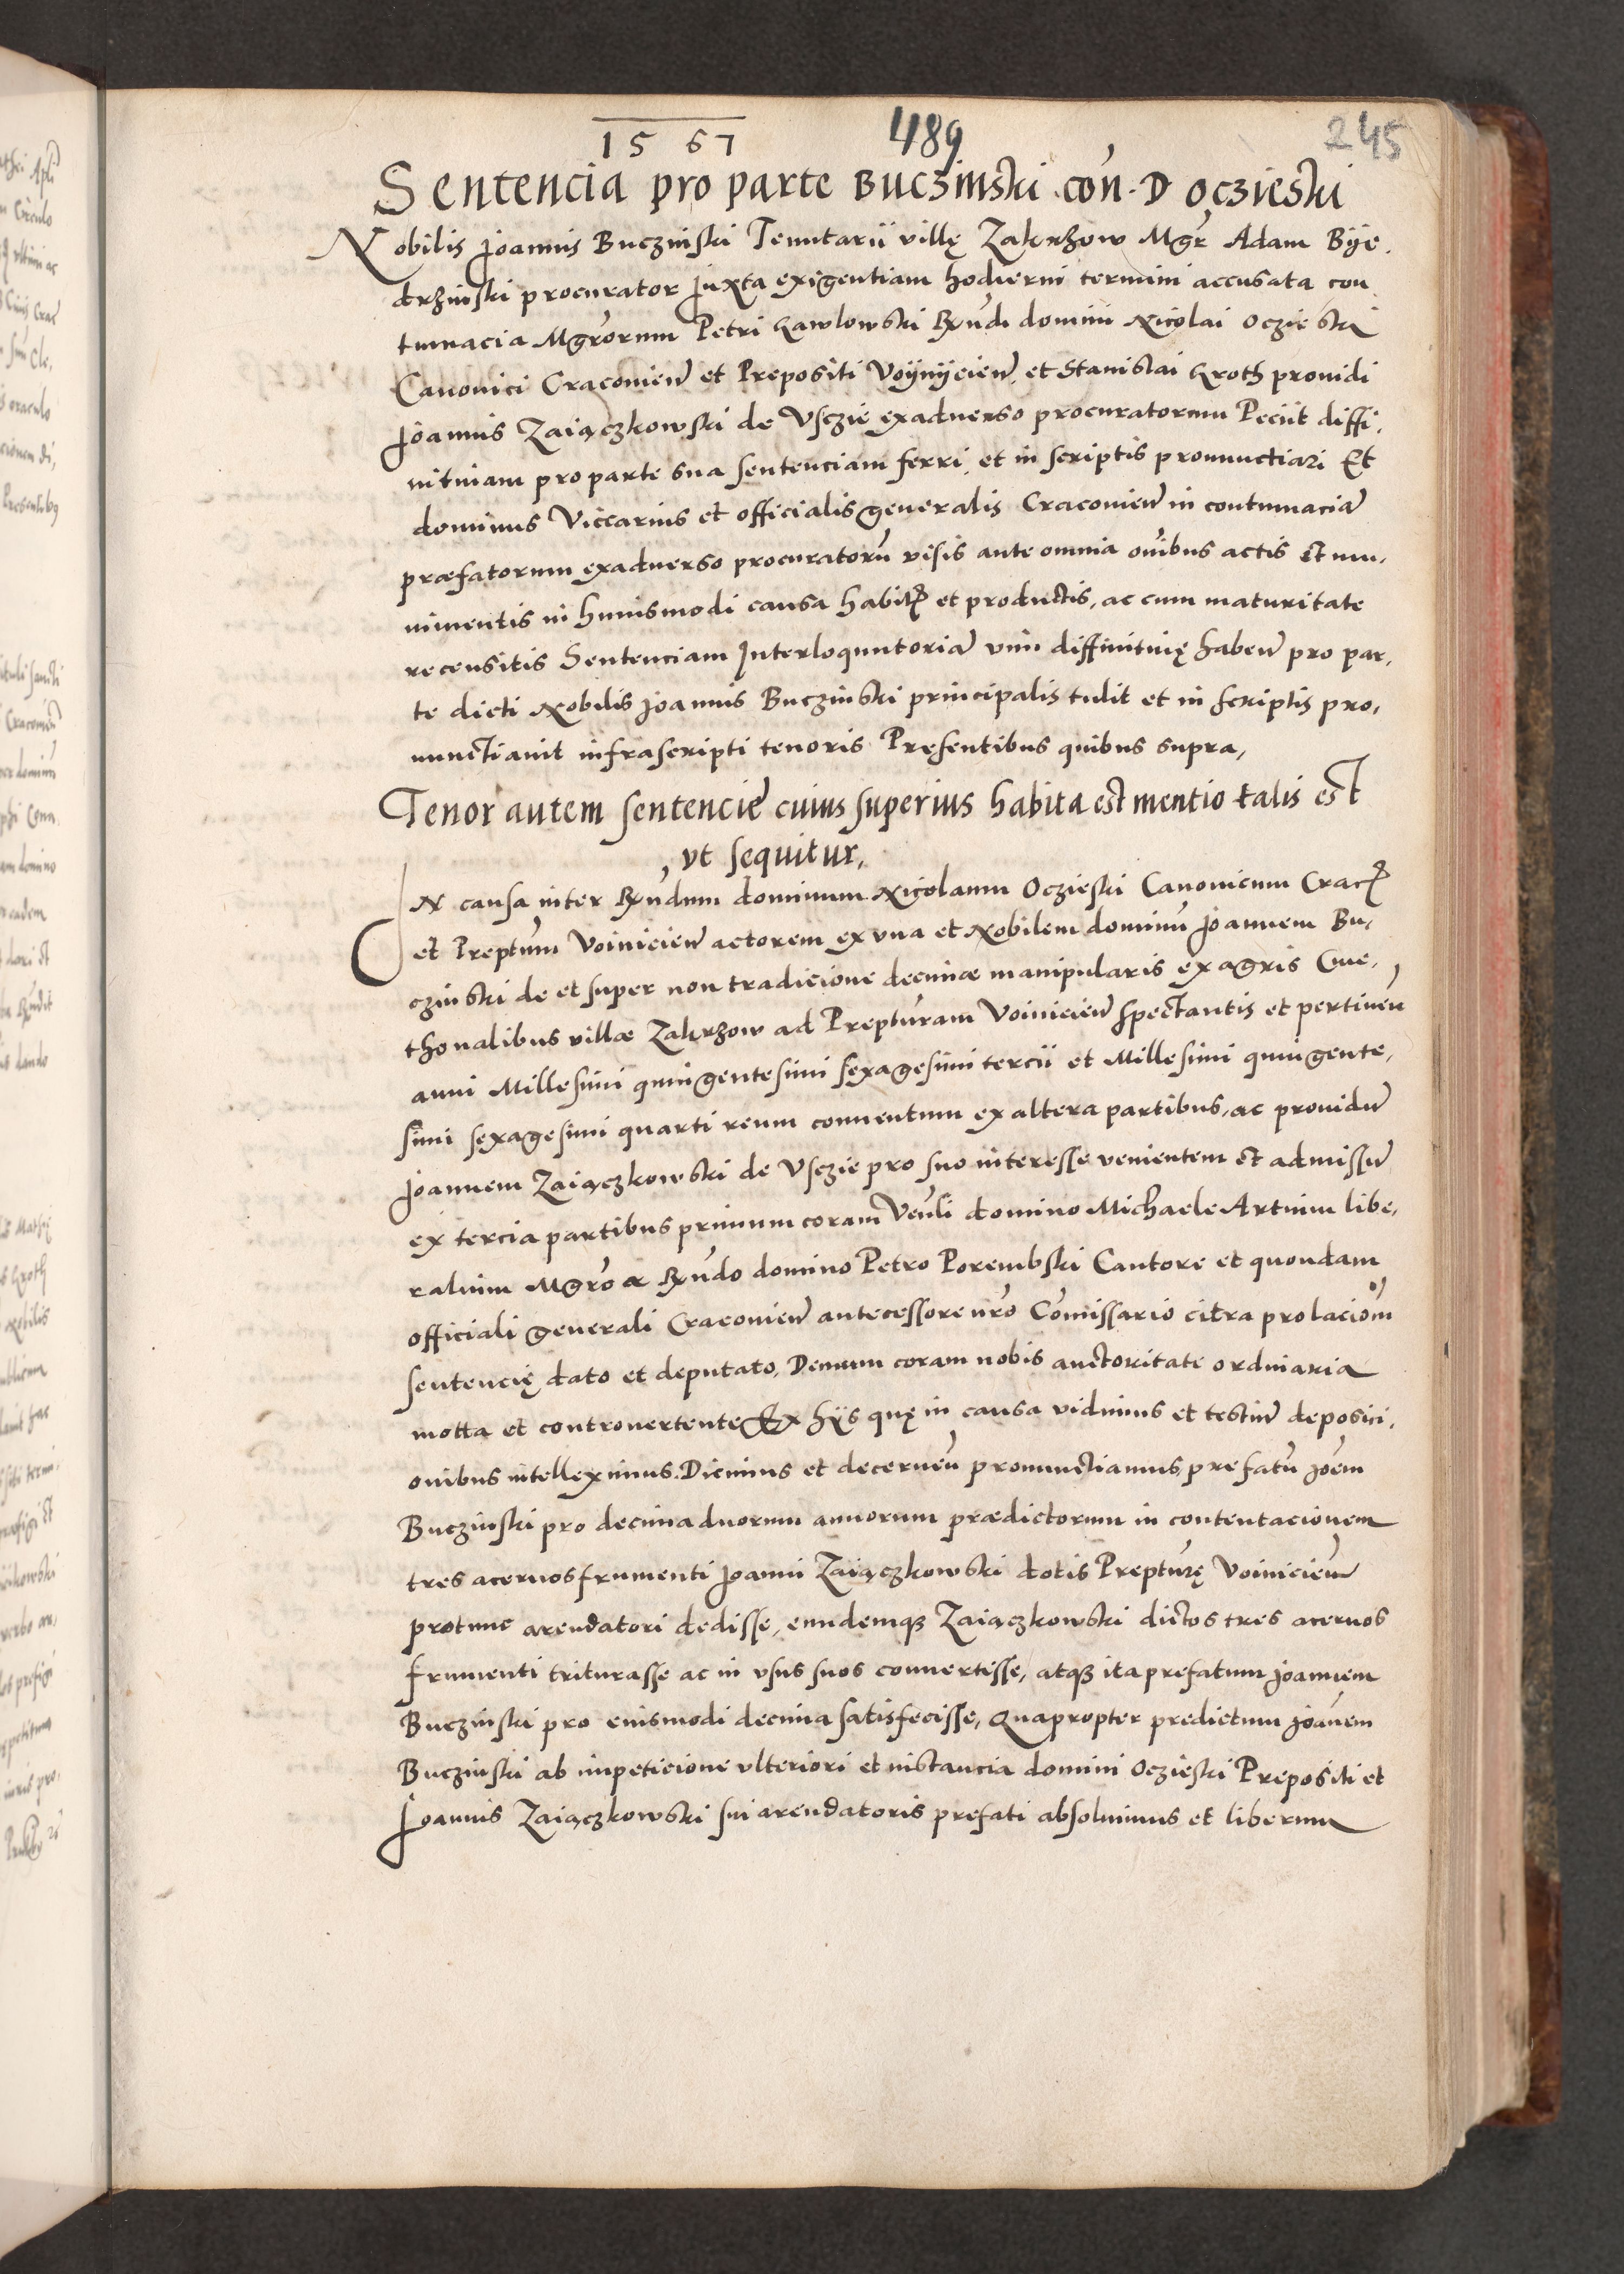 1567 489 245
Sentencia pro parte Buczinski con. D Oczieski
Nobilis Joannis Buczinski Tenutarii villę Zakrzow Mgr Adam Bÿe,
drzinski procurator Juxta exigentiam hodierni termini accusata con
tumacia Mgrorum Petri Gawlowski Rxndi domini Nicolai Oczieski
Canonici Cracovien et Prepositi Voÿnÿcien, et Stanislai Groth prouidi
Joannis Zaiączkowski de Vsczie exaduerso procuratorum Peciit diffi,
nitiuam pro parte sua sentenciam ferri, et in scriptis pronunctiari Et
dominus Viccarius et officialis generalis Cracovien in contumaciam
præfatorum exaduerso procuratorum visis ante omnia omnibus actis et mu,
nimentis in huiusmodi causa habitis et productis, ac cum maturitate
recensitis Sentenciam Interloquutoriam vim diffinitiuę haben pro par,
te dicti Nobilis Joannis Buczinski principalis tulit et in scriptis pro,
nunctiauit infrascripti tenoris Presentibus quibus supra,
Tenor autem sentencie cuius superius habita est mentio talis est
vt sequitur,
IN causa inter Rxndum dominum Nicolaum Oczieski Canonicum Crac
et Preptum Voinicien actorem ex vna et Nobilem dominum Joannem Bu,
czinski de et super non tradicione decimæ manipularis ex agris Cme,
thonalibus villæ Zakrzow ad Prepturam Voinicien spectantis et pertinen
anni Millesimi quingentesimi sexagesimi tercii et Millesimi quingente,
simi sexagesimi quarti reum conuentum ex altera partibus, ac prouidum
Joannem Zaiączkowski de Vsczie pro suo interesse venientem et admissum
ex tercia partibus primum coram Venli domino Michaele Artium libe,
ralium Mgro ac Rxndo domino Petro Porembski Cantore et quondam
officiali generali Cracovien antecessore nro Comissario citra prolaciom
sentencię dato et deputato, Demum coram nobis auctoritate ordinaria
motta et controuertente Ex hÿs quę in causa vidimus et testium deposici,
onibus intelleximus. Dicimus et decernen pronunctiamus prefatum Joem
Buczinski pro decima duorum annorum prædictorum in contentacionem
tres aceruos frumenti Joanni Zaiączkowski dotis Prepturę Voinicien
protunc arendatori dedisse, eundemque Zaiączkowski dictos tres aceruos
frumenti triturasse ac in vsus suos conuertisse, atque ita prefatum Joannem
Buczinski pro eiusmodi decima satisfecisse, Quapropter predictum Joannem
Buczinski ab impeticione vlteriori et instancia domini Oczieski Prepositi et
Joannis Zaiączkowski sui arendatoris prefati absoluimus et liberum